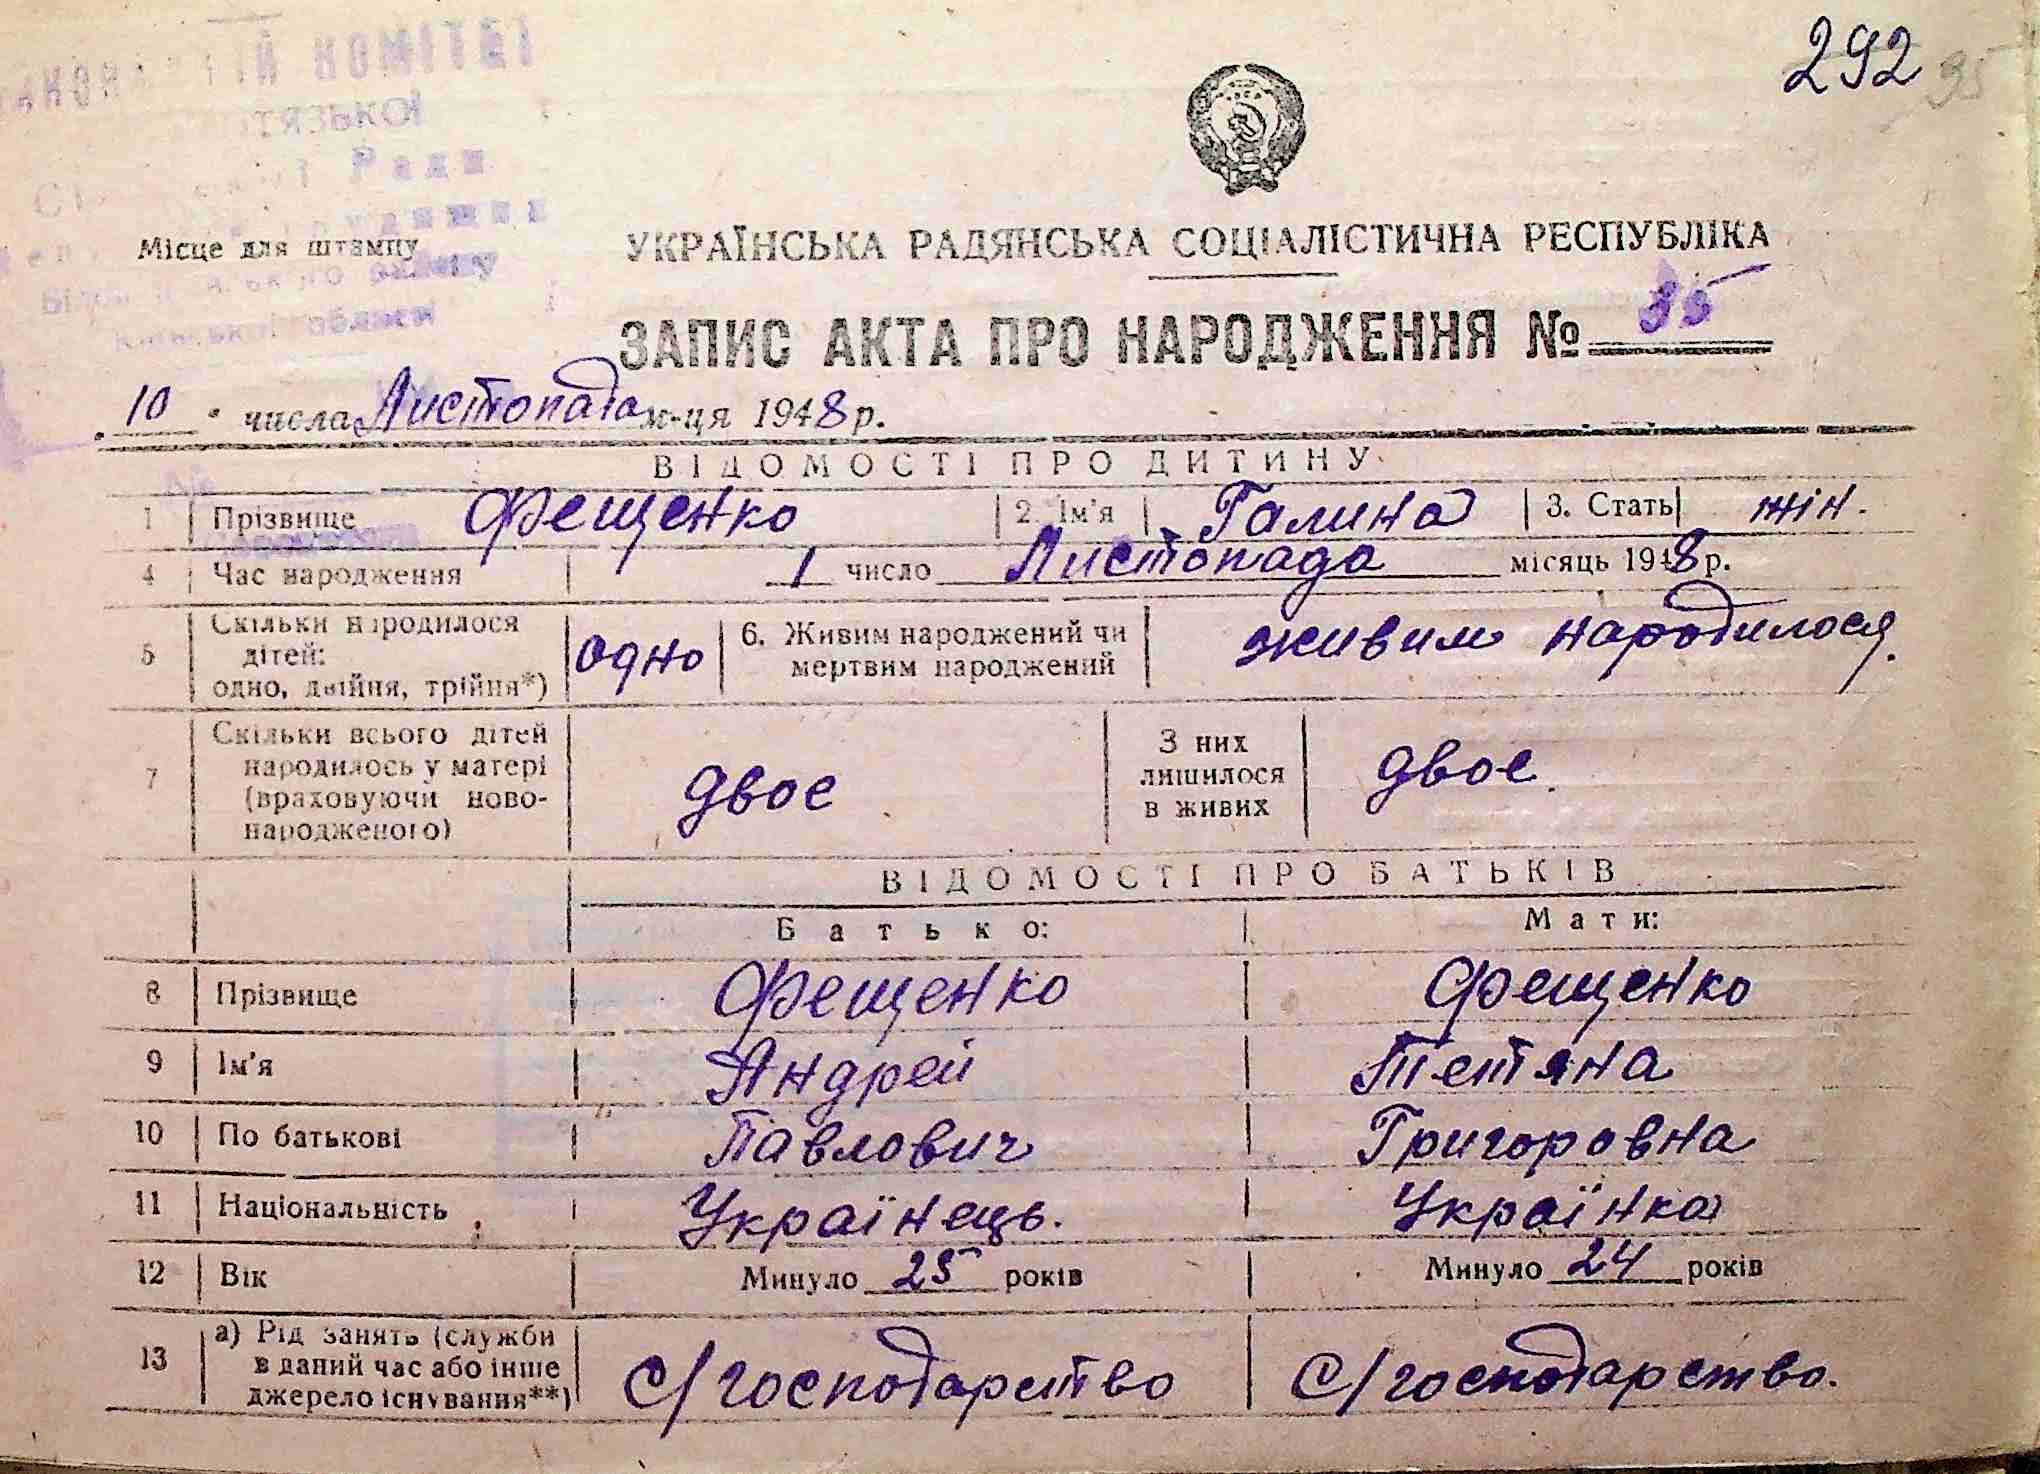 292 95
КОМІТЕТ
Ради
області
Місце для штампу
УКРАЇНСЬКА РАДЯНСЬКА СОЦІАЛІСТИЧНА РЕСПУБЛІКА
ЗАПИС АКТА ПРО НАРОДЖЕННЯ № 35
10 числа Листопада м-ця 1948 р.
ВІДОМОСТІ ПРО ДИТИНУ
1 Прізвище Фещенко 2. Ім'я Галина 3. Стать жін.
4 Час народження 1 число Листопада місяць 1948 р.
5 Скільки народилося дітей: одно, двійня, трійня*) одно 6. Живим народжений чи мертвим народжений живим народилося.
7 Скільки всього дітей народилось у матері (враховуючи ново-народженого) двоє З них лишилося в живих двоє.
ВІДОМОСТІ ПРО БАТЬКІВ
Батько: Мати:
8 Прізвище Фещенко Фещенко
9 Ім'я Андрей Тетяна
10 По батькові Павлович Григоровна
11 Національність Українець. Українка
12 Вік Минуло 25 років Минуло 24 років
13 а) Рід занять (служби в даний час або інше джерело існування**) с/господарство с/господарство.